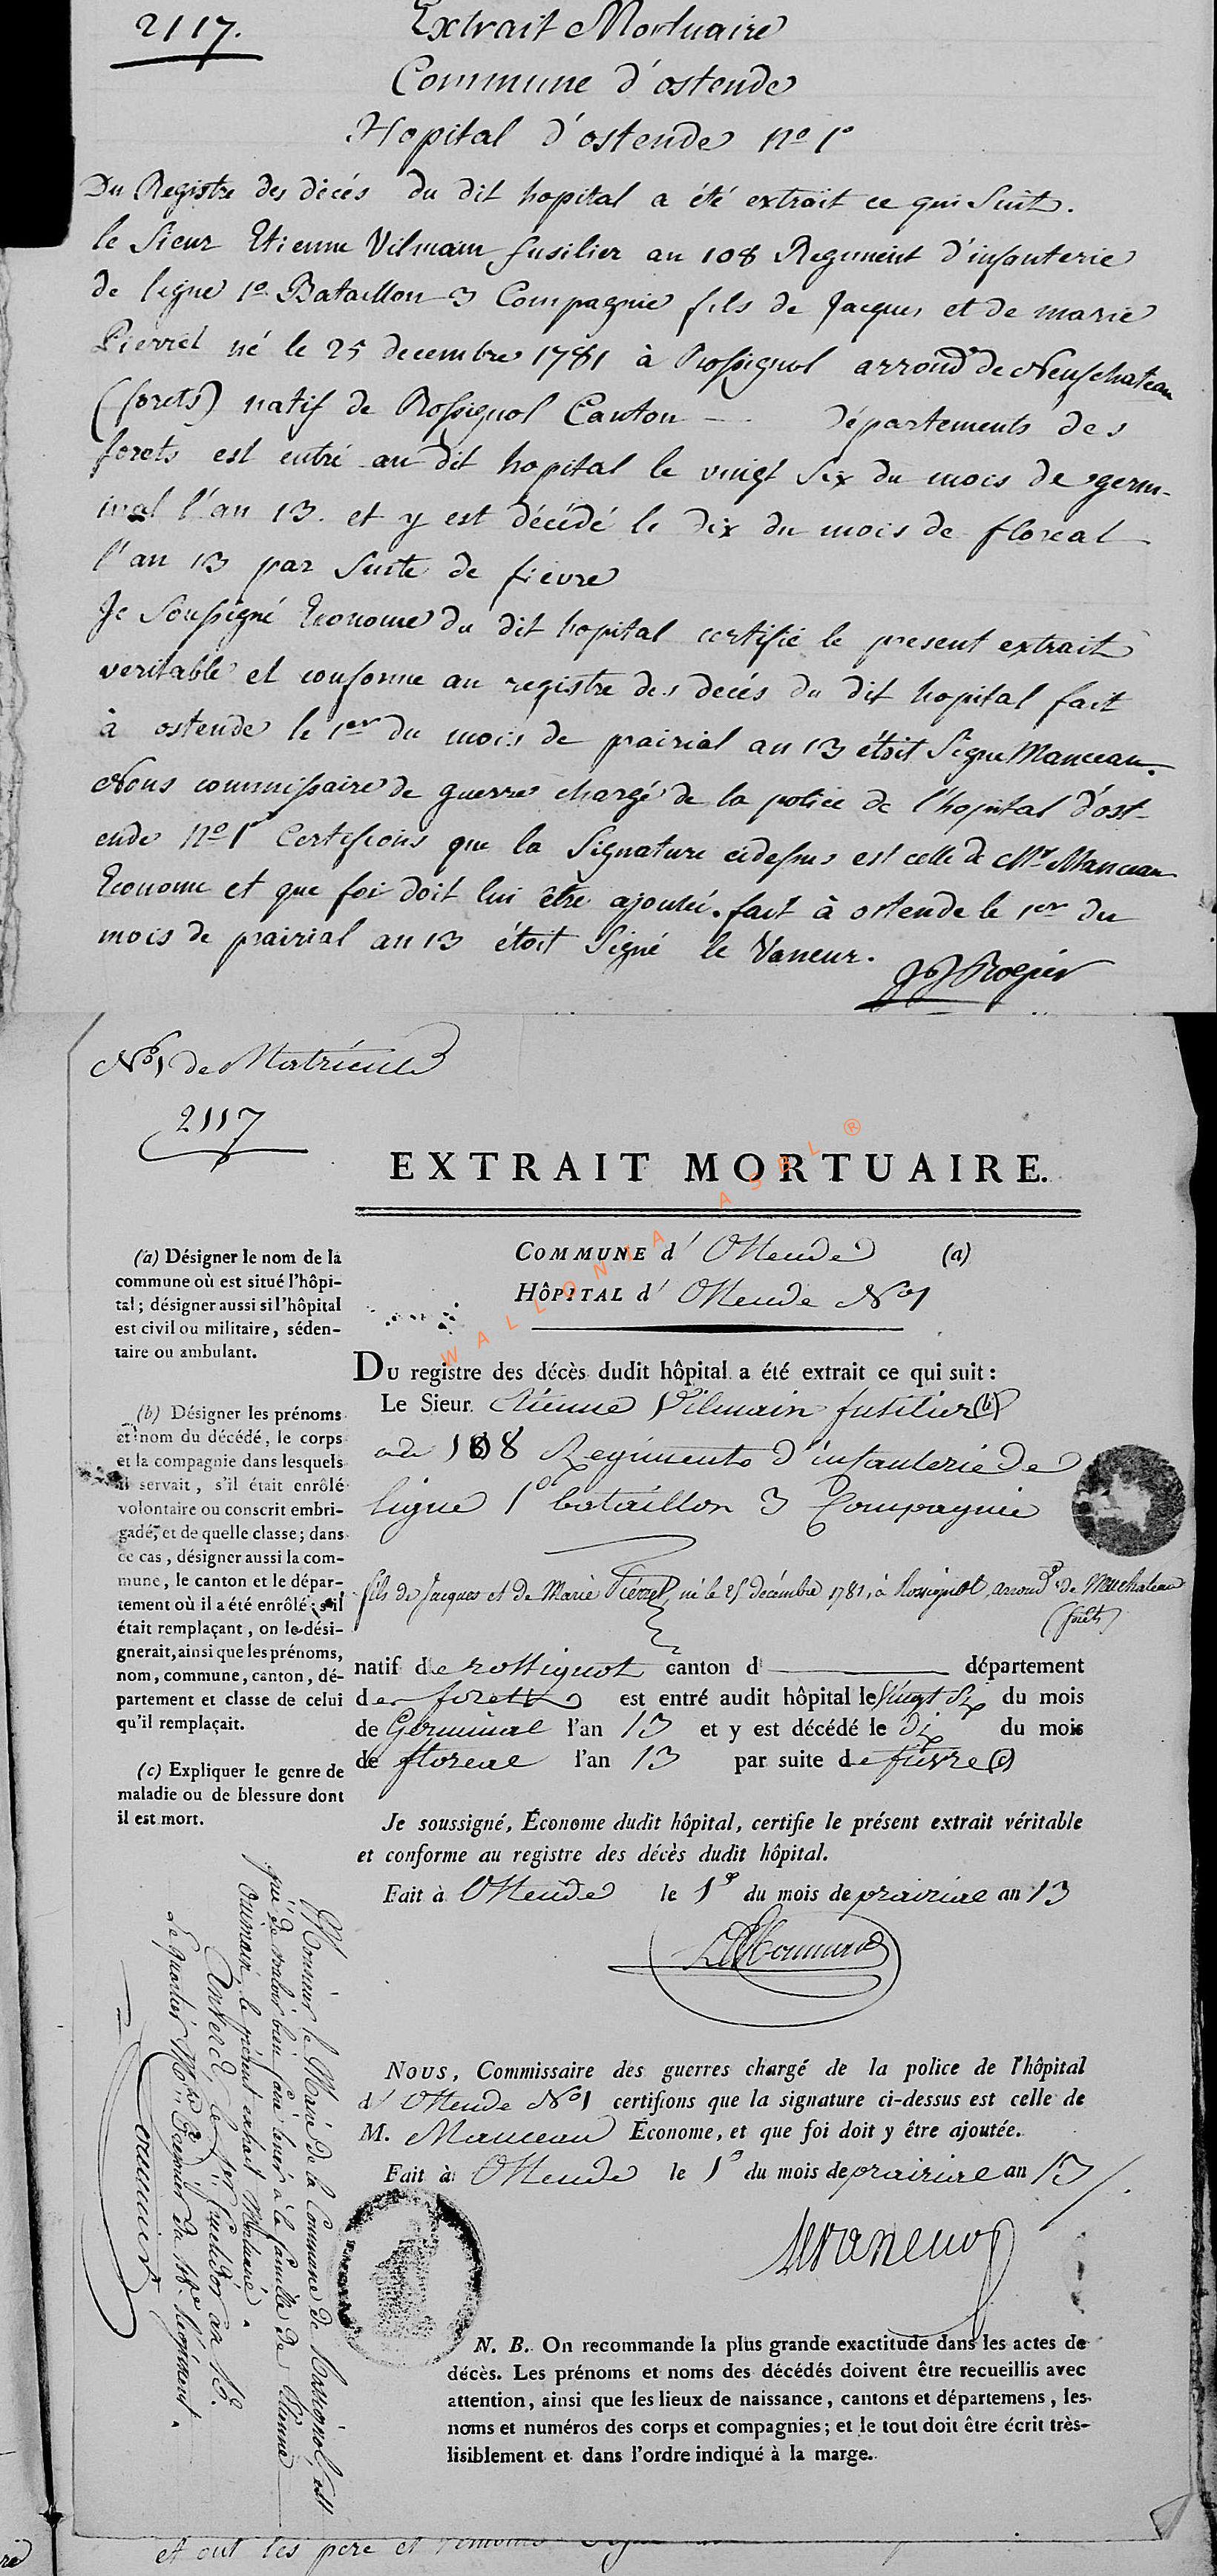 2117.
Extrait Mortuaire
Commune d'ostende
Hopital d'ostende No 1o
Du Registre des décés du dit hopital a été extrait ce qui Suit.
le Sieur Etienne Vilmain fusilier au 108 Regiment d'infanterie
de ligne 1o Bataillon 3 Compagnie fils de Jacques et de marie
Pierret né le 25 decembre 1781 à Rossignol arrondt de Neufchateau
(forets) natif de Rossignol Canton — départements des
forets est entré au dit hopital le vingt Six du mois de germ-
inal l'an 13. et y est décédé le dix du mois de floreal
l'an 13 par Suite de fievre
Je Soussigné Econome du dit hopital certifie le present extrait
veritable et conforme au registre des decés du dit hopital fait
à ostende le 1er du mois de prairial an 13 étoit Signé Manceau.
Nous commissaire de guerre chargé de la police de l'hopital d'ost-
ende No 1r Certifions que la Signature cidessus est celle de Mr Manceau
Econome et que foi doit lui être ajoutée. fait à ostende le 1er du
mois de prairial an 13 étoit Signé le Vaneur.
No 1 de Matricule
2117
EXTRAIT MORTUAIRE.
WALLONIA ASBL ®
(a) Désigner le nom de la
commune où est situé l'hôpi-
tal; désigner aussi si l'hôpital
est civil ou militaire, séden-
taire ou ambulant.
(b) Désigner les prénoms
et nom du décédé, le corps
et la compagnie dans lesquels
il servait, s'il était enrôlé
volontaire ou conscrit embri-
gadé, et de quelle classe; dans
ce cas, désigner aussi la com-
mune, le canton et le dépar-
tement où il a été enrôlé; s'il
était remplaçant, on le dési-
gnerait, ainsi que les prénoms,
nom, commune, canton, dé-
partement et classe de celui
qu'il remplaçait.
(c) Expliquer le genre de
maladie ou de blessure dont
il est mort.
COMMUNE d' Ostende (a)
HÔPITAL d' Ostende No 1
DU registre des décès dudit hôpital a été extrait ce qui suit:
Le Sieur Etienne Vilmain fusilier (b)
au 108 Regiment d'infanterie de
ligne 1o bataillon 3 Compagnie
fils de Jacques et de Marie Pierret, né le 25 décembre 1781, à Rossignol, arrondt de Neufchateau
(forêts)
natif de rossignol canton d — département
des forets est entré audit hôpital le Vingt Six du mois
de Germinal l'an 13 et y est décédé le dix du mois
de floreal l'an 13 par suite de fievre (c)
Je soussigné, Économe dudit hôpital, certifie le présent extrait véritable
et conforme au registre des décès dudit hôpital.
Fait à Ostende le 1er du mois de prairial an 13
Manceau
NOUS, Commissaire des guerres chargé de la police de l'hôpital
d' Ostende No 1 certifions que la signature ci-dessus est celle de
M. Manceau Économe, et que foi doit y être ajoutée.
Fait à Ostende le 1er du mois de prairial an 13 /.
Levaneur
N. B. On recommande la plus grande exactitude dans les actes de
décès. Les prénoms et noms des décédés doivent être recueillis avec
attention, ainsi que les lieux de naissance, cantons et départemens, les
noms et numéros des corps et compagnies; et le tout doit être écrit très-
lisiblement et dans l'ordre indiqué à la marge.
Monsieur le Maire de la Commune de Rossignol, est
prié de vouloir bien faire tenir à la famille de Etienne
Vuimain, le présent extrait Mortuaire.
Anvers le 1er fructidor an 13.
Le quartier Mtre Trésorier du 108e Régiment.
et ont les pere et temoins